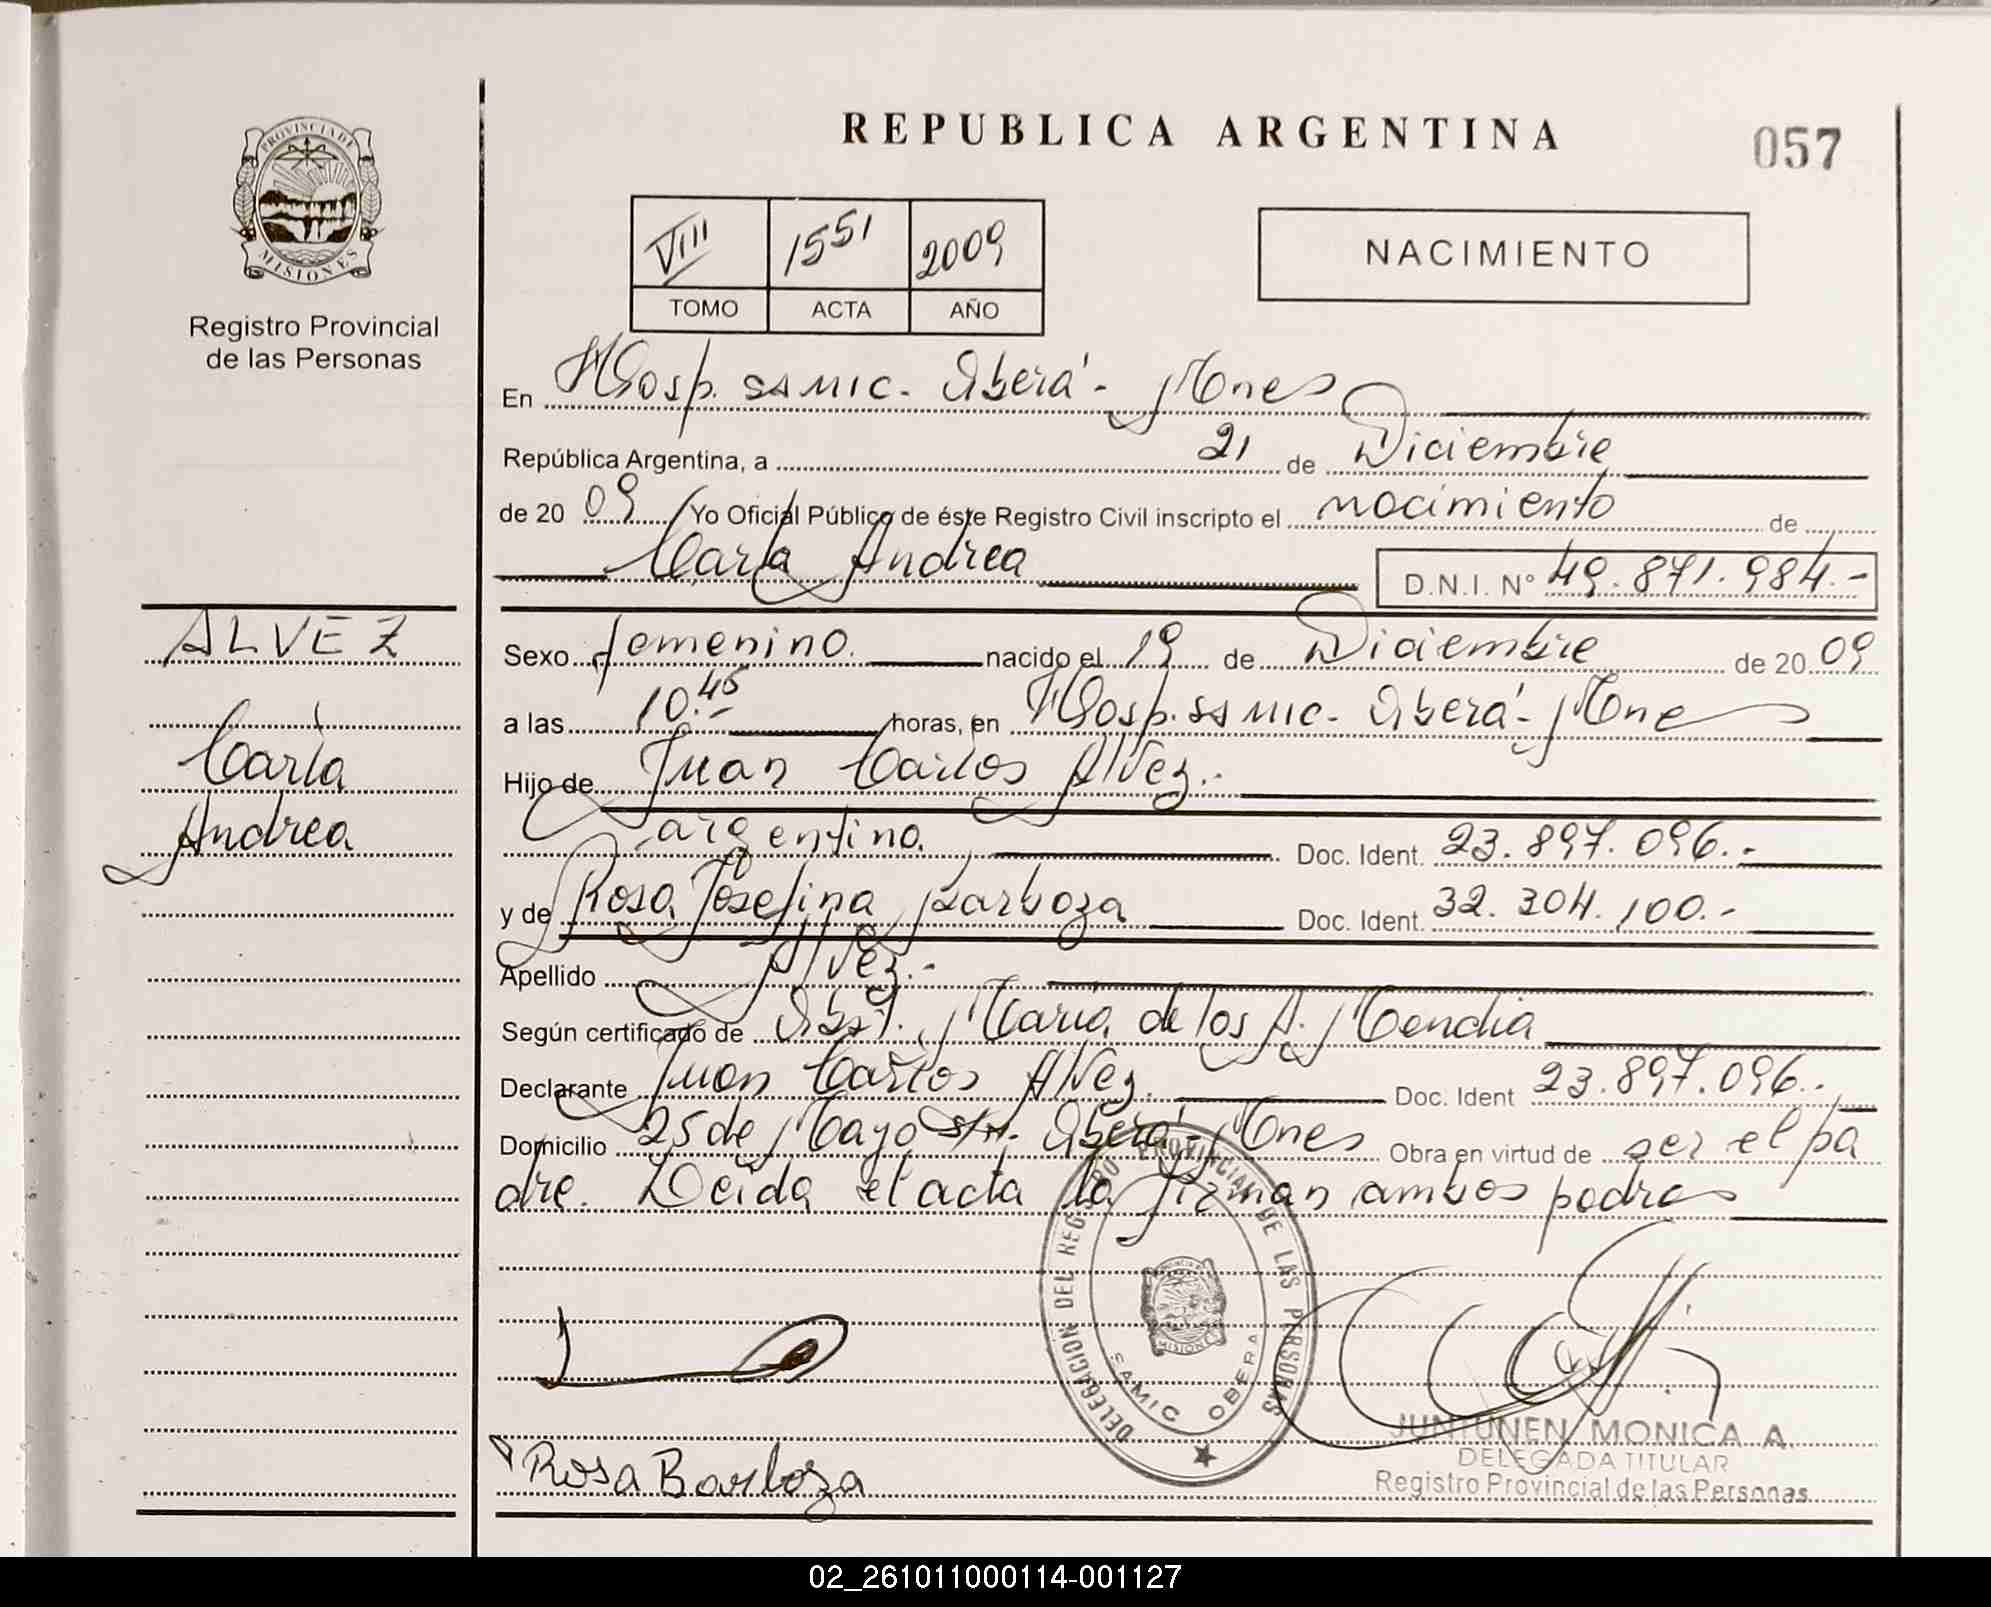 REPUBLICA ARGENTINA
057
PROVINCIA DE
MISIONES
Registro Provincial
de las Personas
VIII 1551 2009
TOMO ACTA AÑO
NACIMIENTO
En Hosp. SAMIC. Oberá - Mnes
República Argentina, a 21 de Diciembre
de 20 09 Yo Oficial Público de éste Registro Civil inscripto el nacimiento de
Carla Andrea D.N.I. N° 49.871.984.-
ALVEZ
Carla
Andrea
Sexo femenino. nacido el 19 de Diciembre de 20 09
a las 10.45 horas, en Hosp. SAMIC. Oberá - Mnes
Hijo de Juan Carlos Alvez.-
argentino. Doc. Ident. 23.897.096.-
y de Rosa Josefina Barboza Doc. Ident. 32.304.100.-
Apellido Alvez.-
Según certificado de Obst. María de los A. Mendia
Declarante Juan Carlos Alvez. Doc. Ident 23.897.096.-
Domicilio 25 de Mayo s/n. Oberá - Mnes Obra en virtud de ser el pa
dre. Leída el acta la firman ambos padres
DELEGACION DEL REGISTRO PROVINCIAL DE LAS PERSONAS
PROVINCIA DE
MISIONES
SAMIC OBERA
Rosa Barboza
JUNTUNEN MONICA A.
DELEGADA TITULAR
Registro Provincial de las Personas
02_261011000114-001127